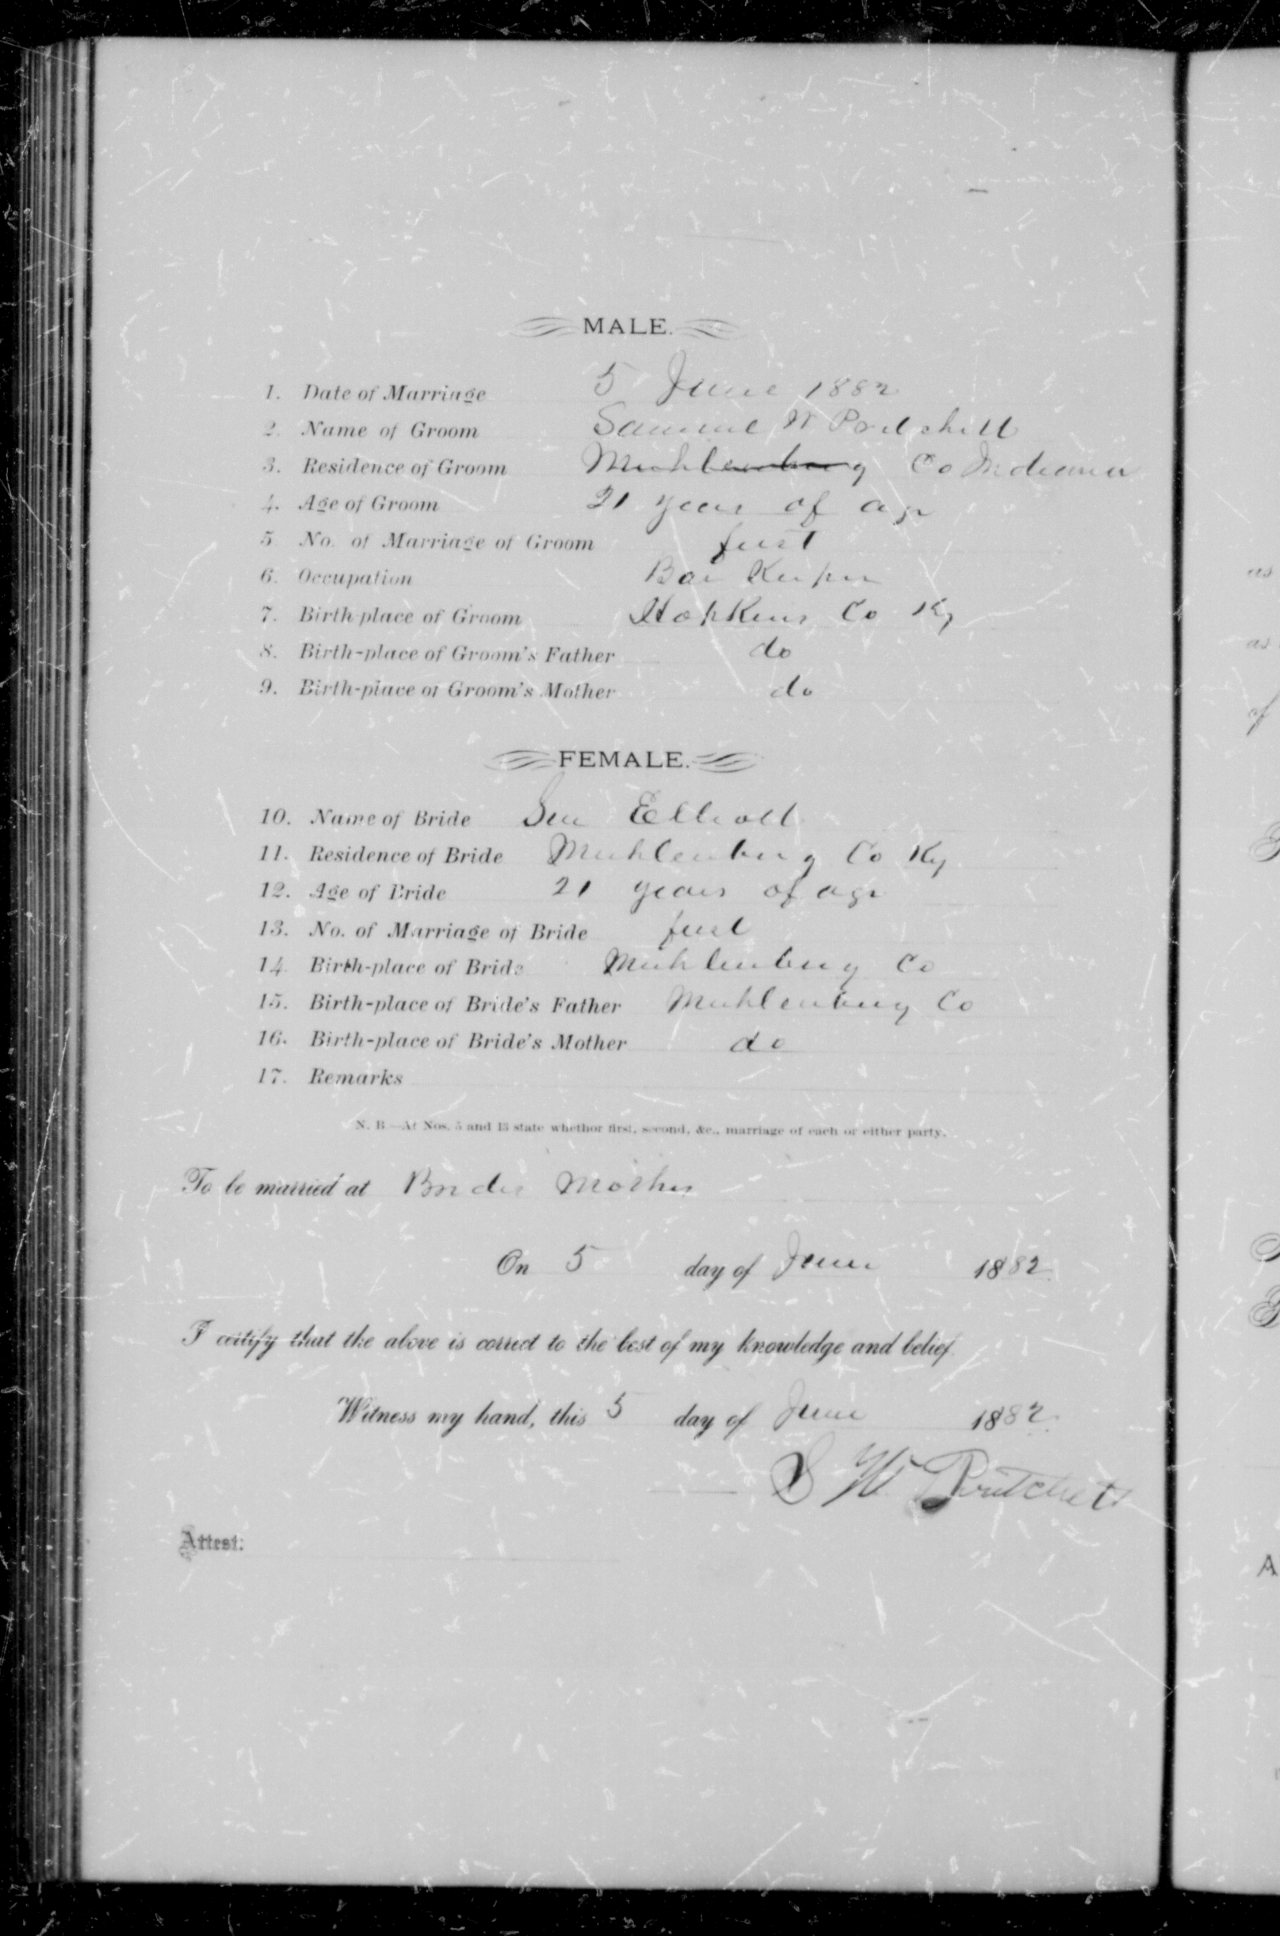 MALE.
1. Date of Marriage 5 June 1882
2. Name of Groom Samuel W Pritchett
3. Residence of Groom Muhlenburg Co Indiana
4. Age of Groom 21 years of age
5. No. of Marriage of Groom first
6. Occupation Bar Keeper
7. Birth-place of Groom Hopkins Co Ky
8. Birth-place of Groom's Father do
9. Birth-place of Groom's Mother do
FEMALE.
10. Name of Bride Sue Elliott
11. Residence of Bride Muhlenburg Co Ky
12. Age of Bride 21 years of age
13. No. of Marriage of Bride first
14. Birth-place of Bride Muhlenburg Co
15. Birth-place of Bride's Father Muhlenburg Co
16. Birth-place of Bride's Mother do
17. Remarks
N. B.—At Nos. 5 and 13 state whether first, second, &c., marriage of each or either party.
To be married at Brides Mothers
On 5 day of June 1882
I certify that the above is correct to the best of my knowledge and belief.
Witness my hand, this 5 day of June 1882.
S W Pritchett
Attest: